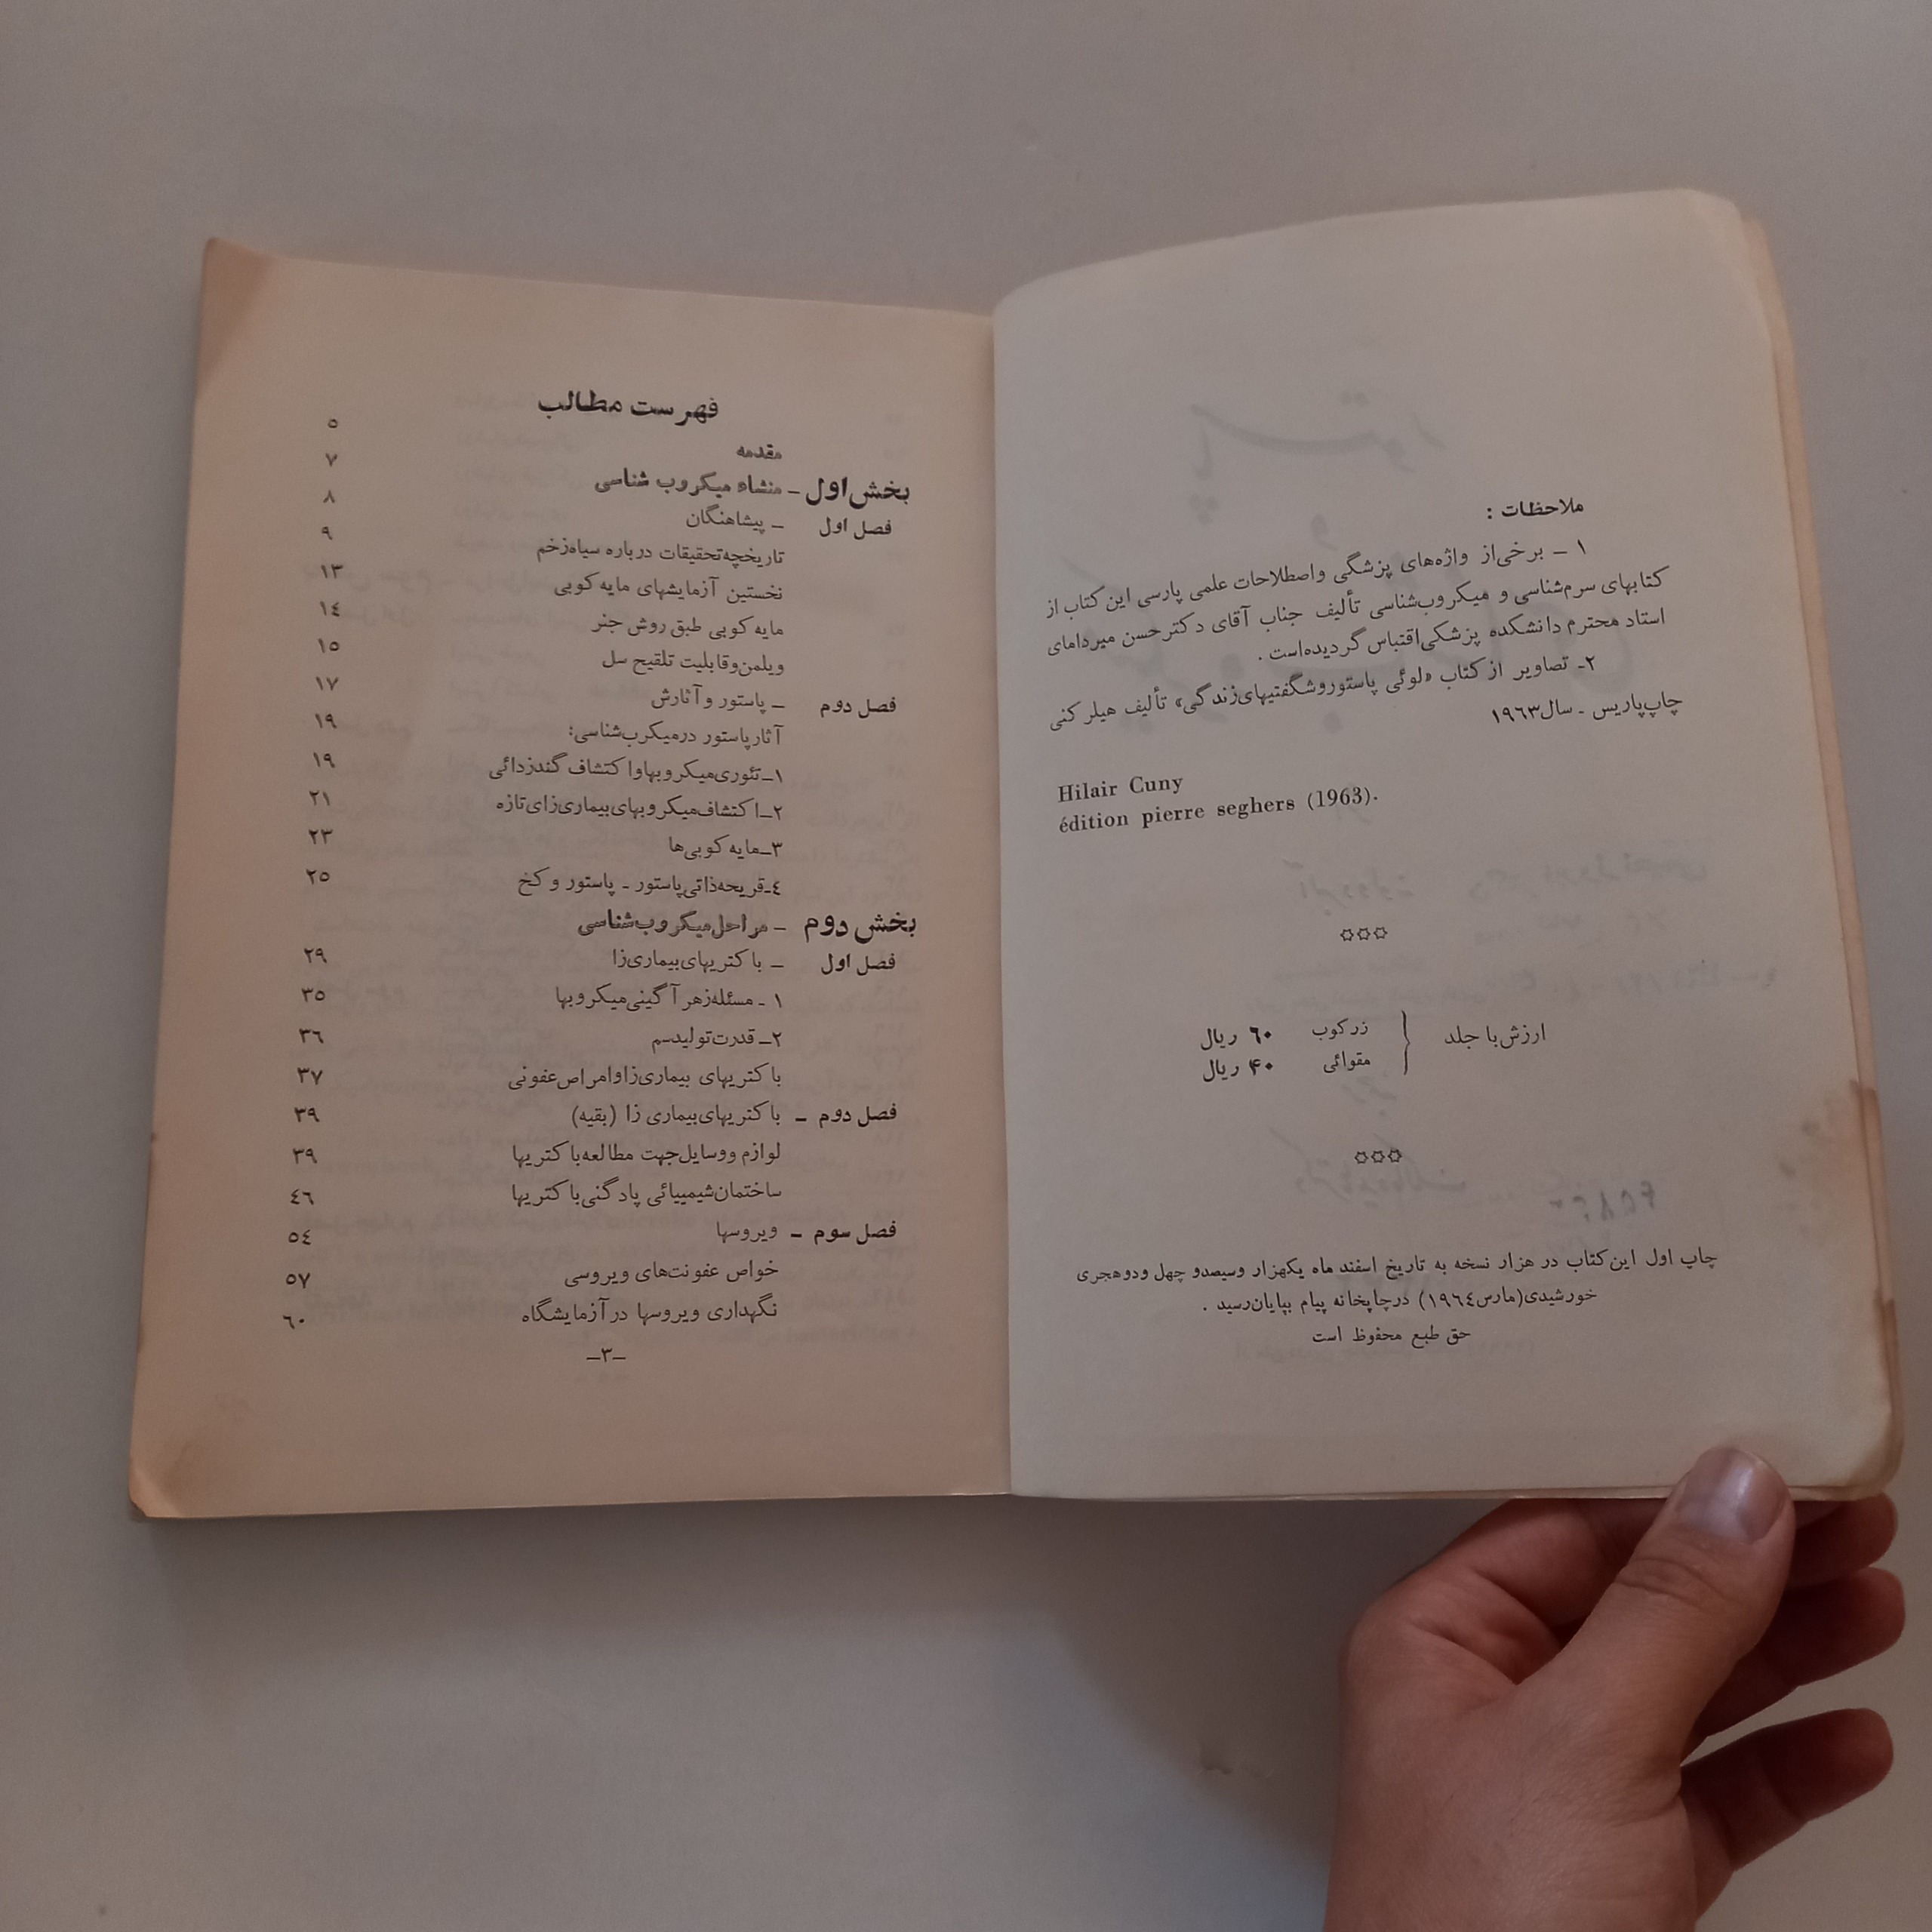 ملاحظات :
۱ – برخی‌از واژه‌های پزشگی واصطلاحات علمی پارسی این کتاب از
کتابهای سرم‌شناسی و میکروب‌شناسی تألیف جناب آقای دکترحسن میردامای
استاد محترم دانشکده پزشکی‌اقتباس گردیده‌است .
۲- تصاویر از کتاب «لوئی پاستوروشگفتیهای‌زندگی» تألیف هیلر کنی
چاپ‌پاریس - سال۱۹۶۳
Hilair Cuny
édition pierre seghers (1963).
✡✡✡
ارزش‌با جلد { زرکوب ۶۰ ریال
مقوائی ۴۰ ریال
✡✡✡
چاپ اول این‌کتاب در هزار نسخه به تاریخ اسفند ماه یکهزار وسیصدو چهل ودوهجری
خورشیدی(مارس۱۹٦٤) درچاپخانه پیام بپایان‌رسید .
حق طبع محفوظ است
فهرست مطالب
مقدمه ٥
بخش‌اول – منشاء میکروب شناسی ۷
فصل اول – پیشاهنگان ۸
تاریخچه‌تحقیقات درباره سیاه‌زخم ۹
نخستین آزمایشهای مایه کوبی ۱۳
مایه کوبی طبق روش جنر ۱٤
ویلمن‌وقابلیت تلقیح سل ۱٥
فصل دوم – پاستور و آثارش ۱۷
آثارپاستور درمیکرب‌شناسی: ۱۹
۱–تئوری‌میکروبهاوا کتشاف گندزدائی ۱۹
۲–ا کتشاف‌میکروبهای‌بیماری‌زای‌تازه ۲۱
۳–مایه کوبی‌ها ۲۳
٤-قریحه‌ذاتی‌پاستور - پاستور و کخ ۲٥
بخش دوم – مراحل‌میکروب‌شناسی
فصل اول – باکتریهای‌بیماری‌زا ۲۹
۱ - مسئله‌زهر آ گینی‌میکروبها ۳٥
۲– قدرت‌تولیدسم ۳٦
باکتریهای بیماری‌زاوامراض‌عفونی ۳۷
فصل دوم – باکتریهای‌بیماری زا (بقیه) ۳۹
لوازم ووسایل‌جهت مطالعه‌باکتریها ۳۹
ساختمان‌شیمییائی پادگنی‌باکتریها ٤٦
فصل سوم – ویروسها ٥٤
خواص عفونت‌های ویروسی ٥۷
نگهداری ویروسها در آزمایشگاه ٦۰
–۳–